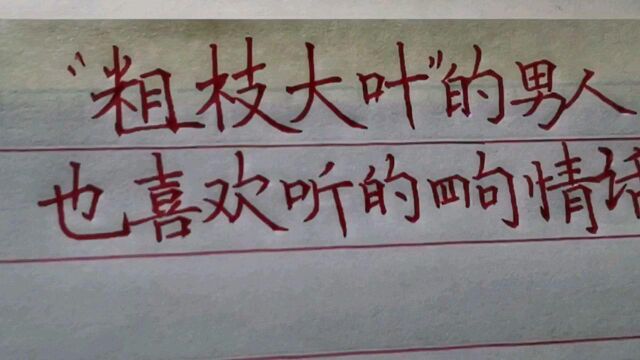 “粗枝大叶”的男人
也喜欢听的四句情话